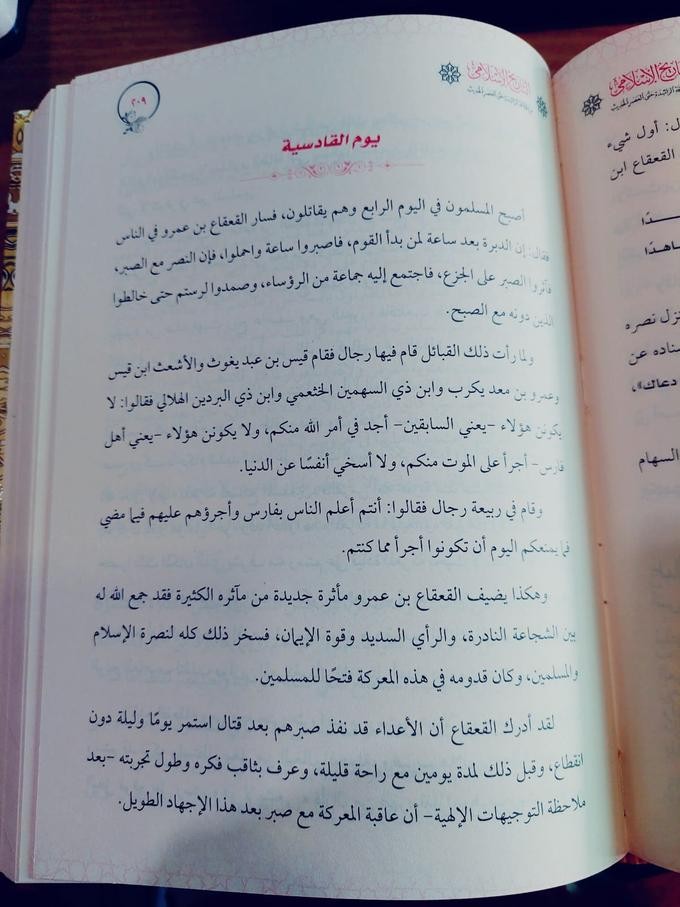 ٢٠٩
التاريخ الإسلامي
يوم القادسية
أصبح المسلمون في اليوم الرابع وهم يقاتلون، فسار القعقاع بن عمرو في الناس
فقال: إن الدبرة بعد ساعة لمن بدأ القوم، فاصبروا ساعة واحملوا، فإن النصر مع الصبر،
فآثروا الصبر على الجزع، فاجتمع إليه جماعة من الرؤساء، وصمدوا لرستم حتى خالطوا
الذين دونه مع الصبح.
ولما رأت ذلك القبائل قام فيها رجال فقام قيس بن عبد يغوث والأشعث ابن قيس
وعمرو بن معد يكرب وابن ذي السهمين الخثعمي وابن ذي البردين الهلالي فقالوا: لا
يكونن هؤلاء -يعني السابقين- أجد في أمر الله منكم، ولا يكونن هؤلاء -يعني أهل
فارس- أجرأ على الموت منكم، ولا أسخي أنفسًا عن الدنيا.
وقام في ربيعة رجال فقالوا: أنتم أعلم الناس بفارس وأجرؤهم عليهم فيما مضي
فما يمنعكم اليوم أن تكونوا أجرأ مما كنتم.
وهكذا يضيف القعقاع بن عمرو مأثرة جديدة من مآثره الكثيرة فقد جمع الله له
بين الشجاعة النادرة، والرأي السديد وقوة الإيمان، فسخر ذلك كله لنصرة الإسلام
والمسلمين، وكان قدومه في هذه المعركة فتحًا للمسلمين.
لقد أدرك القعقاع أن الأعداء قد نفذ صبرهم بعد قتال استمر يومًا وليلة دون
انقطاع، وقبل ذلك لمدة يومين مع راحة قليلة، وعرف بثاقب فكره وطول تجربته -بعد
ملاحظة التوجيهات الإلهية- أن عاقبة المعركة مع صبر بعد هذا الإجهاد الطويل.
أول شيء
القعقاع ابن
نزل نصره
عن
دعاك»،
السهام